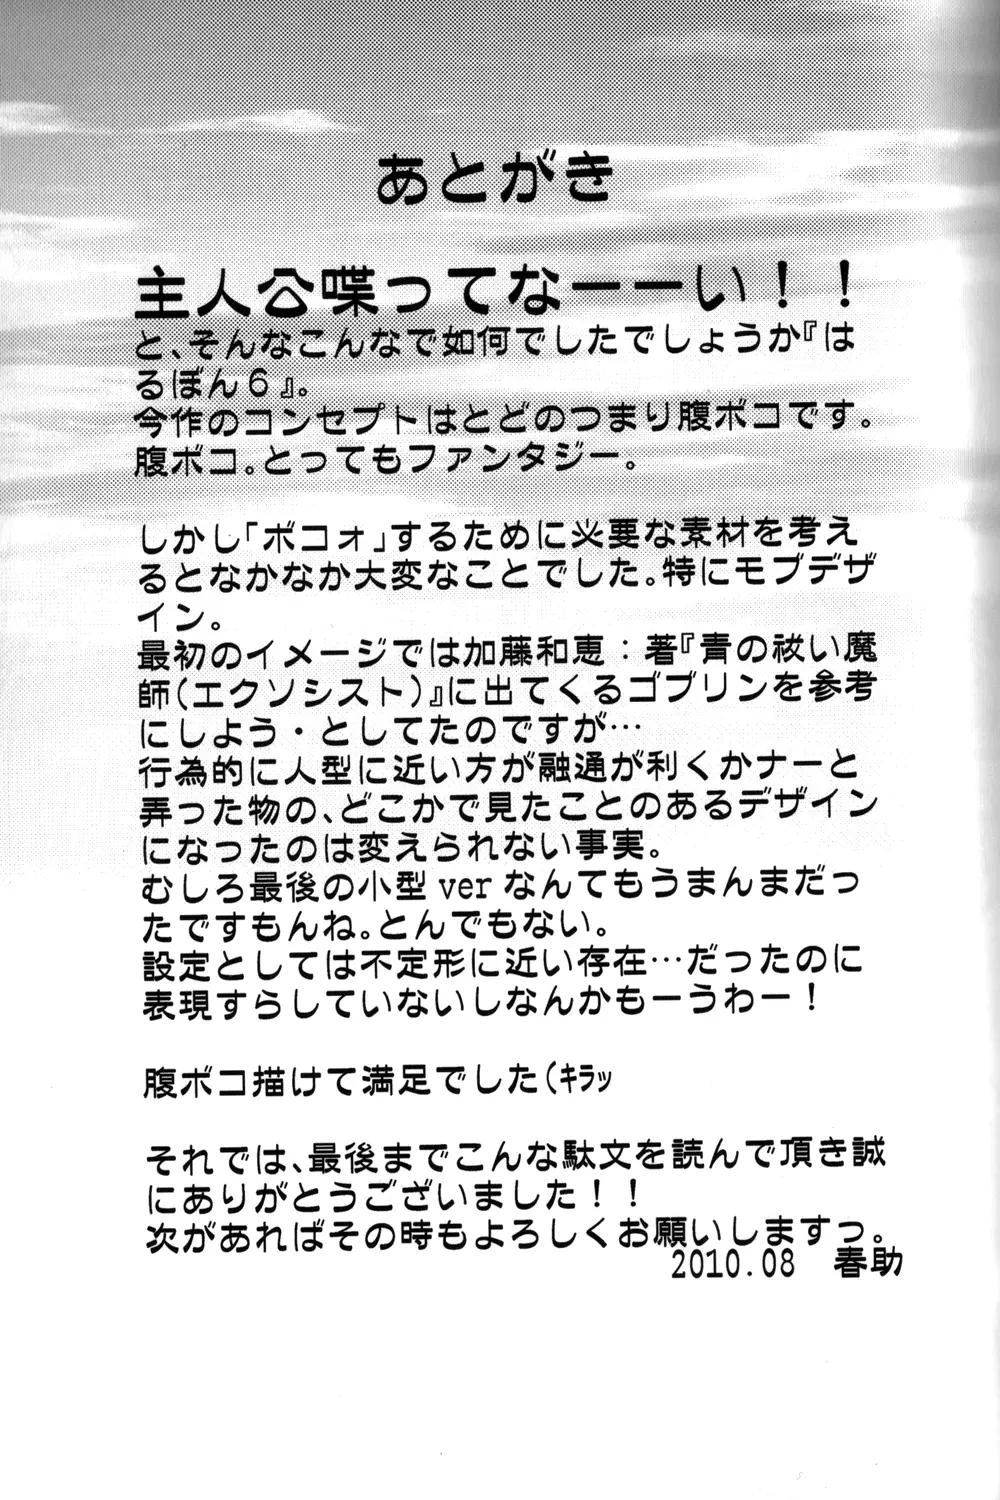 あとがき
主人公喋ってなーーい！！
と、そんなこんなで如何でしたでしょうか『は
るぼん６』。
今作のコンセプトはとどのつまり腹ボコです。
腹ボコ。とってもファンタジー。
しかし「ボコォ」するために必要な素材を考え
るとなかなか大変なことでした。特にモブデザ
イン。
最初のイメージでは加藤和恵：著『青の祓い魔
師（エクソシスト）』に出てくるゴブリンを参考
にしよう・としてたのですが…
行為的に人型に近い方が融通が利くかナーと
弄った物の、どこかで見たことのあるデザイン
になったのは変えられない事実。
むしろ最後の小型verなんてもうまんまだっ
たですもんね。とんでもない。
設定としては不定形に近い存在…だったのに
表現すらしていないしなんかもーうわー！
腹ボコ描けて満足でした（ｷﾗｯ
それでは、最後までこんな駄文を読んで頂き誠
にありがとうございました！！
次があればその時もよろしくお願いしますっ。
2010.08　春助